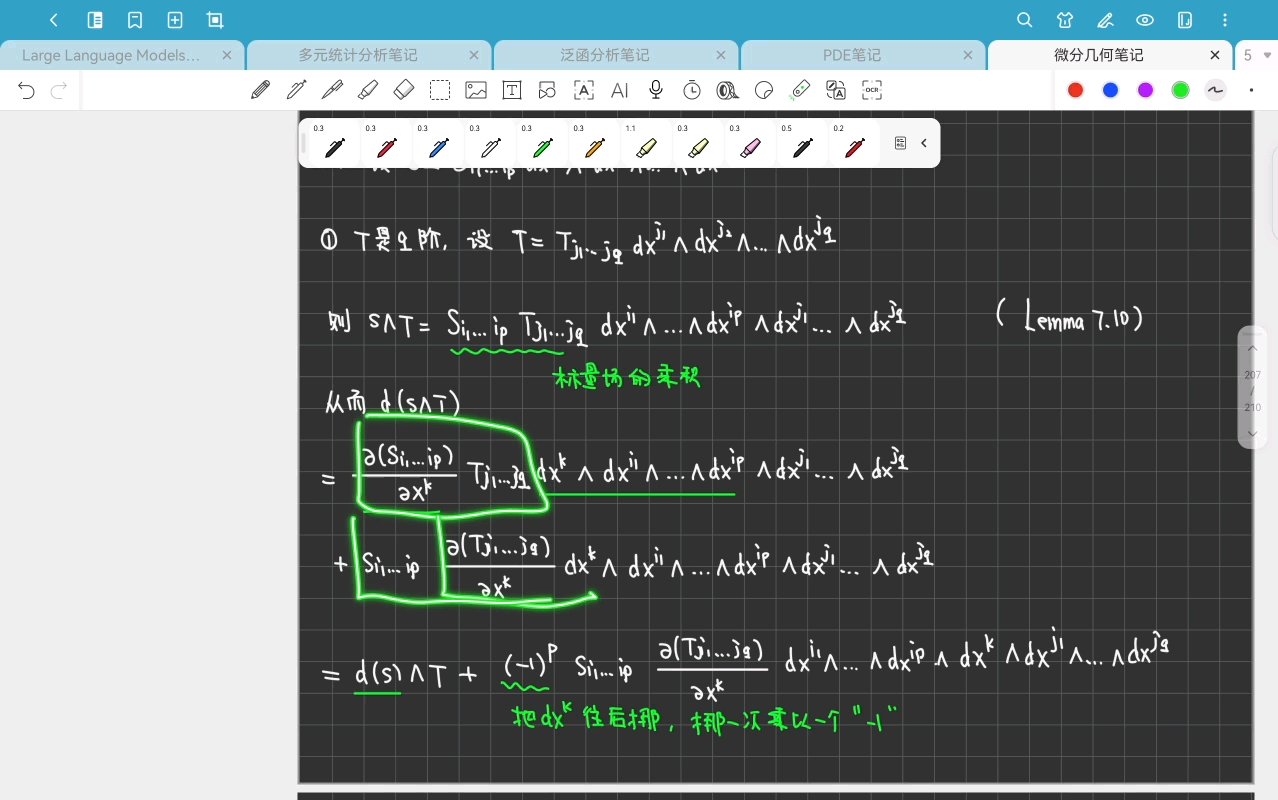 Large Language Models... × 多元统计分析笔记 × 泛函分析笔记 × PDE笔记 × 微分几何笔记 × 5
AI OCR
0.3 0.3 0.3 0.3 0.3 0.3 1.1 0.3 0.3 0.5 0.2
① T是q阶, 设 T = T_{j₁…j_q} dx^{j₁} ∧ dx^{j₂} ∧ … ∧ dx^{j_q}
则 S∧T = S_{i₁…i_p} T_{j₁…j_q} dx^{i₁} ∧ … ∧ dx^{i_p} ∧ dx^{j₁} … ∧ dx^{j_q} (Lemma 7.10)
标量场的乘积
从而 d(S∧T)
= ∂(S_{i₁…i_p})/∂x^k T_{j₁…j_q} dx^k ∧ dx^{i₁} ∧ … ∧ dx^{i_p} ∧ dx^{j₁} … ∧ dx^{j_q}
+ S_{i₁…i_p} ∂(T_{j₁…j_q})/∂x^k dx^k ∧ dx^{i₁} ∧ … ∧ dx^{i_p} ∧ dx^{j₁} … ∧ dx^{j_q}
= d(S)∧T + (-1)^p S_{i₁…i_p} ∂(T_{j₁…j_q})/∂x^k dx^{i₁} ∧ … ∧ dx^{i_p} ∧ dx^k ∧ dx^{j₁} ∧ … ∧ dx^{j_q}
把dx^k往后挪, 挪一次乘以一个"-1"
207
/
210